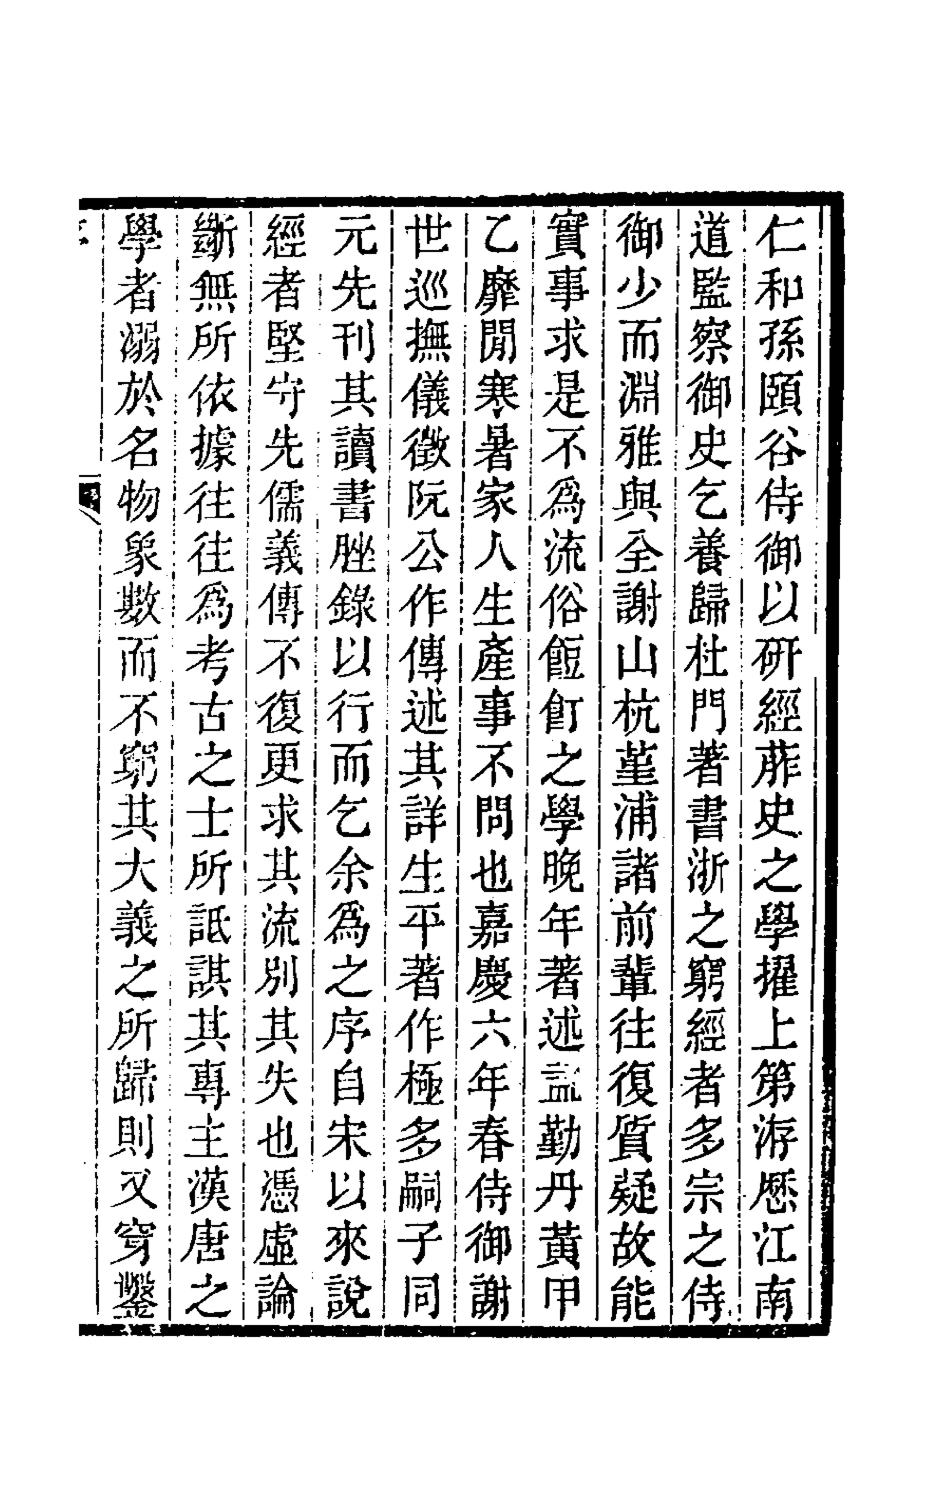 仁和孫頤谷侍御以研經蓷史之學擢上第洊歷江南
道監察御史乞養歸杜門著書浙之窮經者多宗之侍
御少而淵雅與全謝山杭堇浦諸前輩往復質疑故能
實事求是不爲流俗餖飣之學晚年著述益勤丹黃甲
乙靡閒寒暑家人生產事不問也嘉慶六年春侍御謝
世巡撫儀徵阮公作傳述其詳生平著作極多嗣子同
元先刊其讀書脞錄以行而乞余爲之序自宋以來說
經者堅守先儒義傳不復更求其流別其失也憑虛論
斷無所依據往往爲考古之士所詆諆其專主漢唐之
學者溺於名物象數而不窮其大義之所歸則又穿鑿